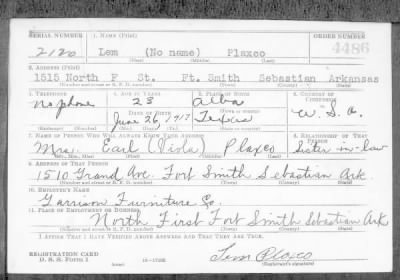 SERIAL NUMBER 1. NAME (Print) ORDER NUMBER
2120 Lem (No name) Plaxco 4486
(First) (Middle) (Last)
2. ADDRESS (Print)
1515 North F St. Ft. Smith Sebastian Arkansas
(Number and street or R. F. D. number) (Town) (County) (State)
3. TELEPHONE 4. AGE IN YEARS 5. PLACE OF BIRTH 6. COUNTRY OF CITIZENSHIP
no phone 23 Alba U. S. A.
DATE OF BIRTH (Town or county)
June 26, 1917 Texas
(Exchange) (Number) (Mo.) (Day) (Yr.) (State or country)
7. NAME OF PERSON WHO WILL ALWAYS KNOW YOUR ADDRESS 8. RELATIONSHIP OF THAT PERSON
Mrs. Earl (Viola) Plaxco Sister-in-law
(Mr., Mrs., Miss) (First) (Middle) (Last)
9. ADDRESS OF THAT PERSON
1510 Grand Ave. Fort Smith Sebastian Ark.
(Number and street or R. F. D. number) (Town) (County) (State)
10. EMPLOYER'S NAME
Garrison Furniture Co.
11. PLACE OF EMPLOYMENT OR BUSINESS
North First Fort Smith Sebastian Ark
(Number and street or R. F. D. number) (Town) (County) (State)
I AFFIRM THAT I HAVE VERIFIED ABOVE ANSWERS AND THAT THEY ARE TRUE.
REGISTRATION CARD
D. S. S. Form 1 (over) Lem Plaxco
(Registrant's signature)